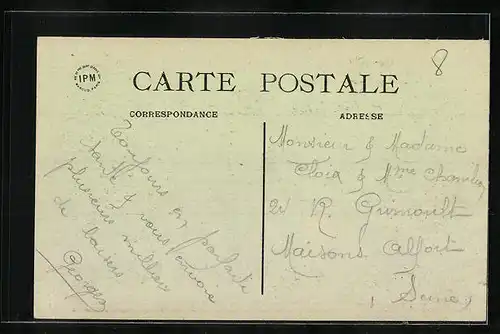 IPM
8
CARTE POSTALE
CORRESPONDANCE
ADRESSE
Toujours en parfaite
santé & vous envoie
plusieurs milliers
de baisers
Georges
Monsieur & Madame
& Mme
R. Grimoult
Maisons Alfort
Seine